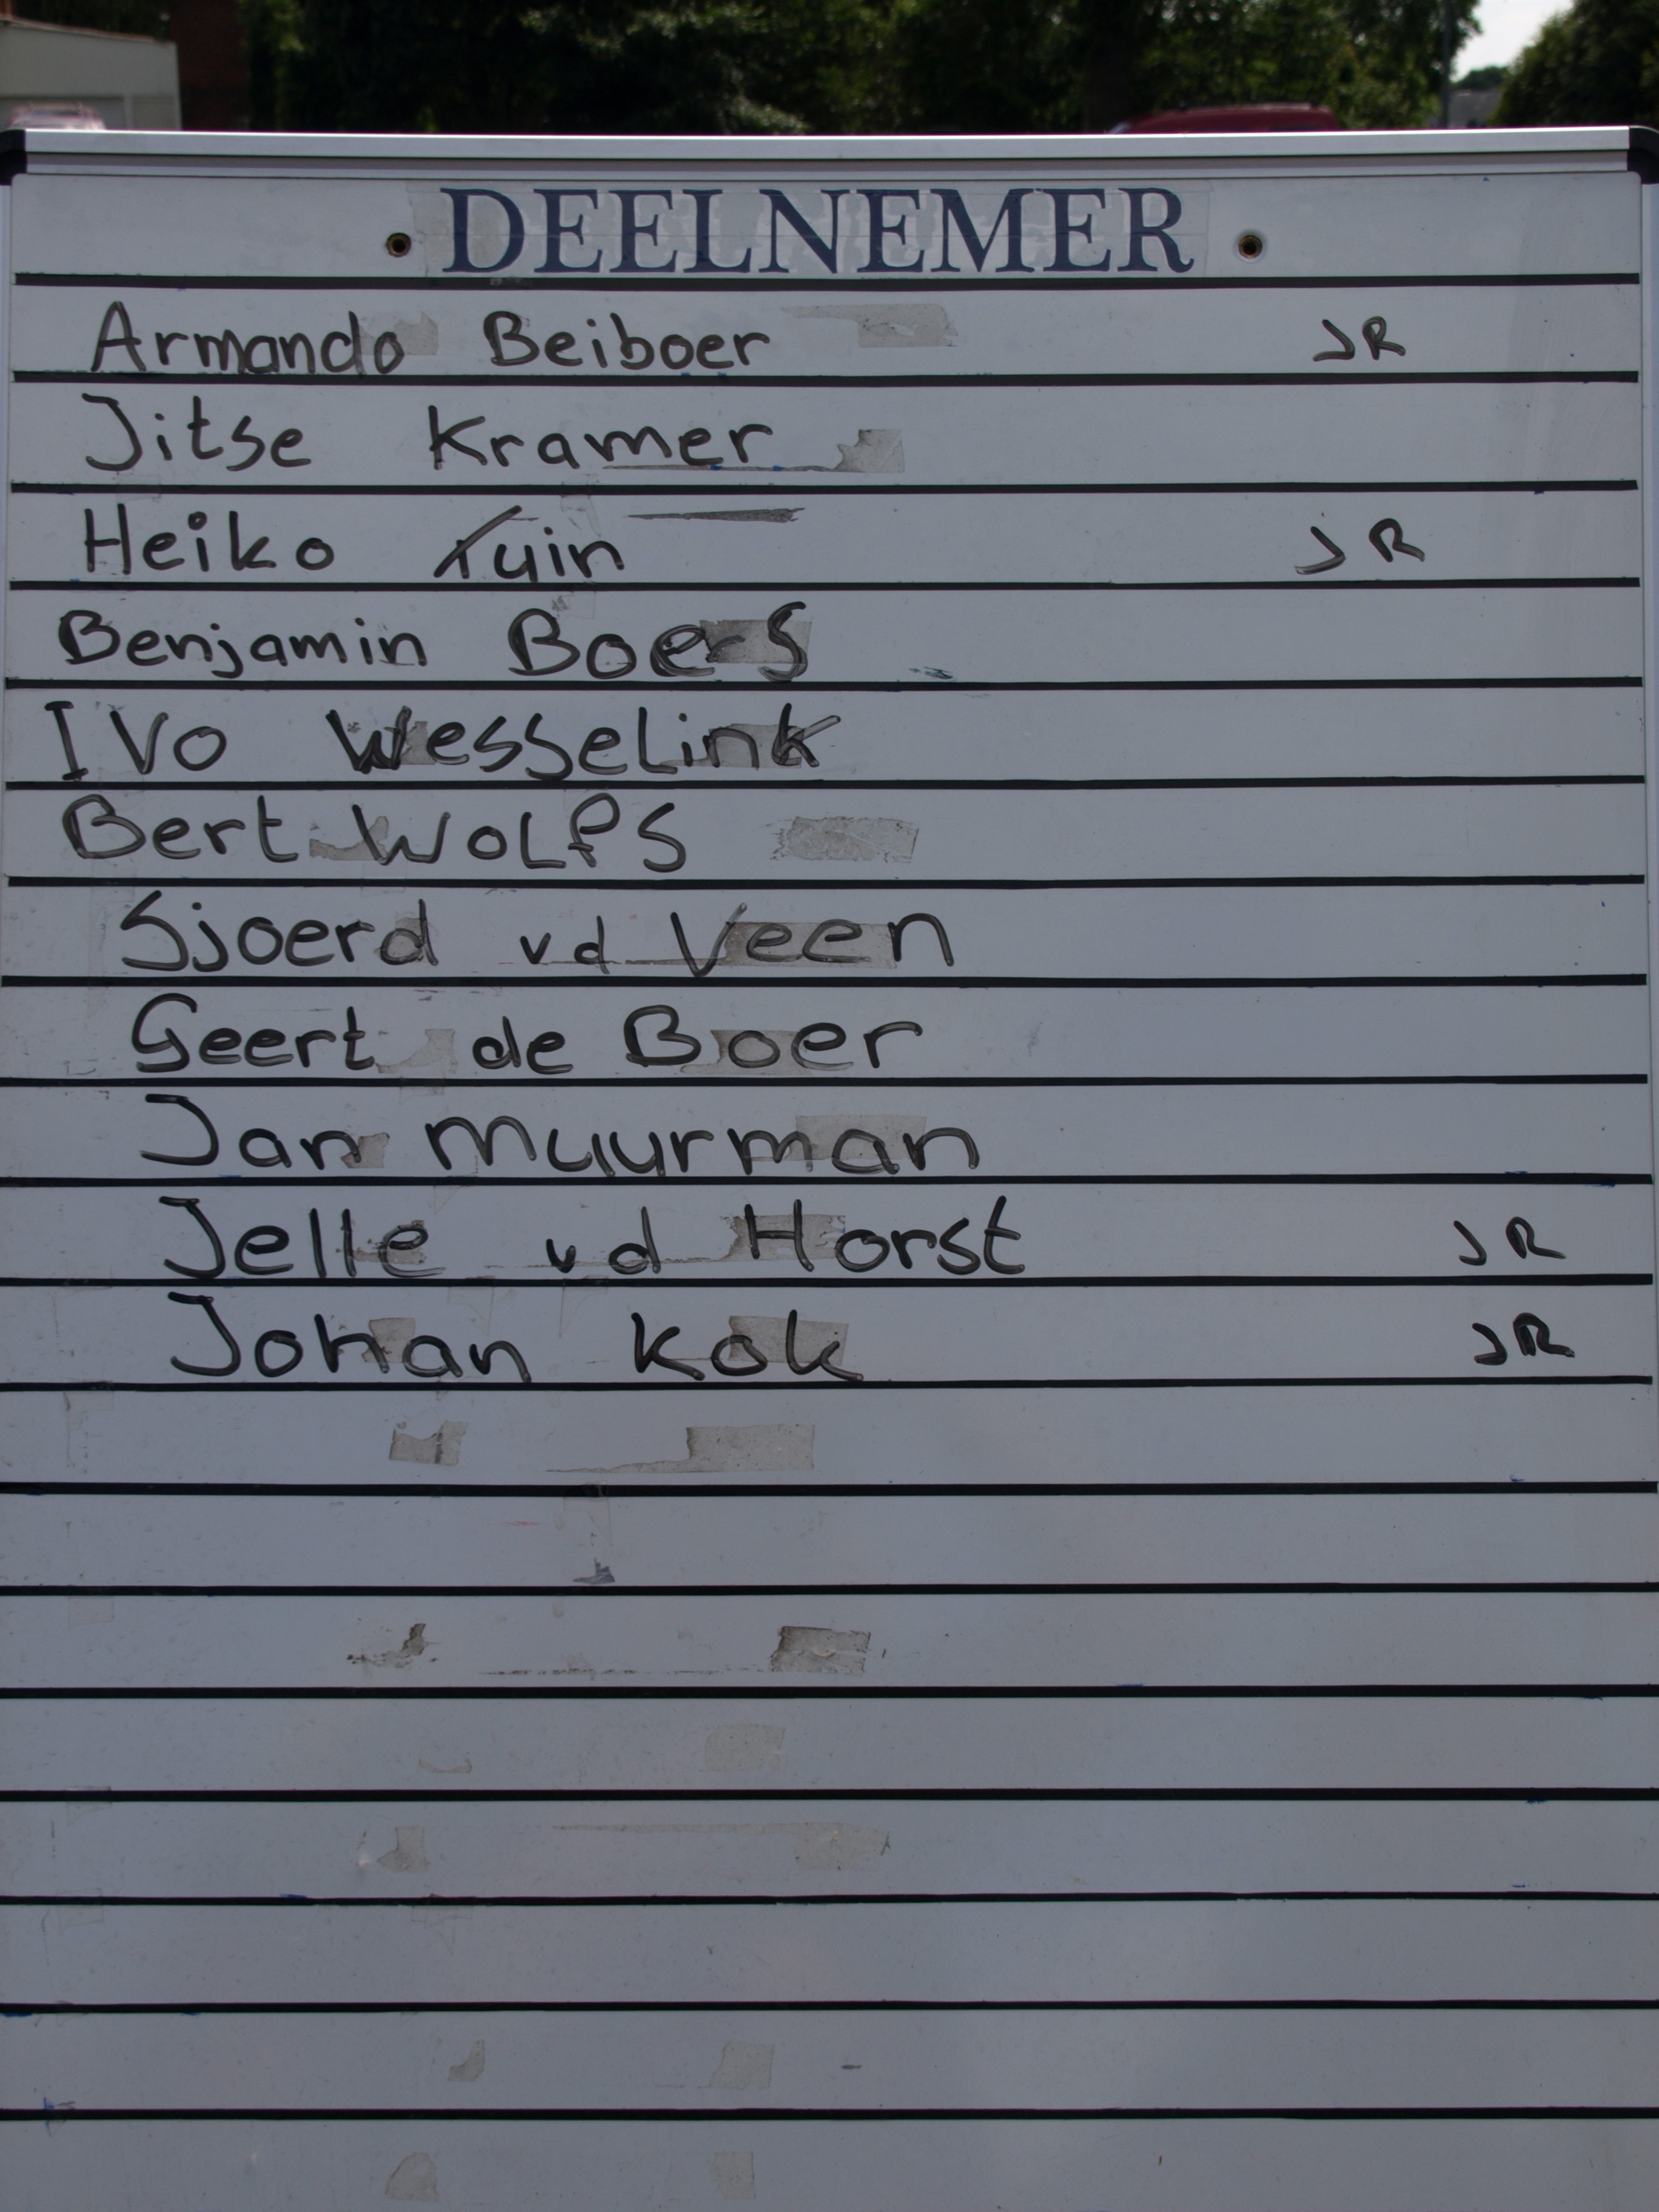 DEELNEMER
Armando Beiboer JR
Jitse Kramer
Heiko Tuin JR
Benjamin Boers
Ivo Wesselink
Bert Wolfs
Sjoerd vd Veen
Geert de Boer
Jan Muurman
Jelle vd Horst JR
Johan Kok JR